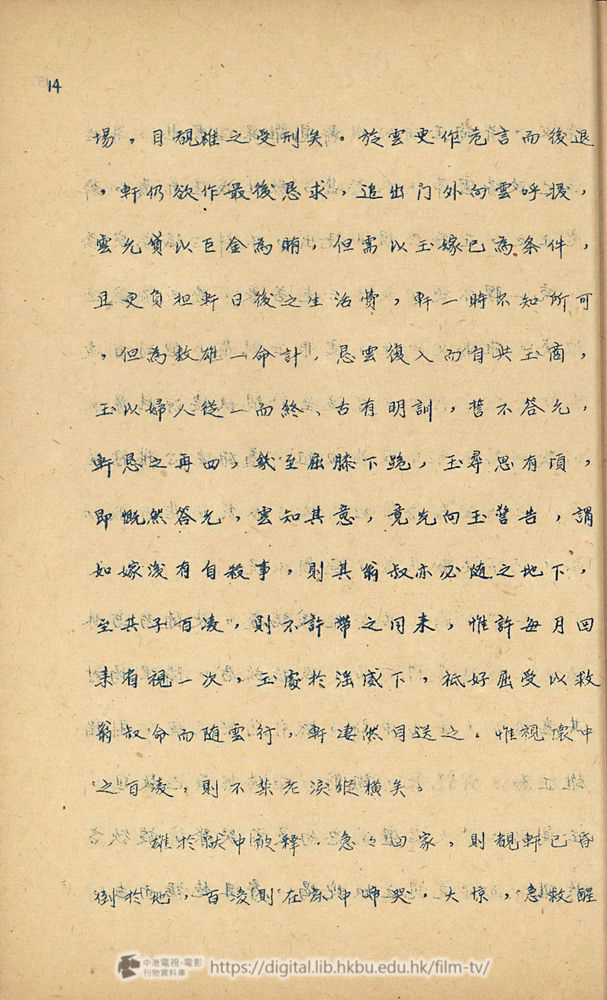 14
場，目覩雄之受刑矣。於雲更作危言而後退
，軒仍欲作最後恳求，追出门外向雲呼援，
雲允貸以巨金為賄，但需以玉嫁己為条件，
且更負担軒日後之生活費，軒一時不知所可
，但為救雄一命計，恳雲復入而自共玉商，
玉以婦人從一而終、古有明訓，誓不答允，
軒恳之再四，幾至屈膝下跪，玉尋思有頃，
即慨然答允，雲知其意，竟先向玉警告，謂
如嫁後有自殺事，則其翁叔亦必随之地下，
至共子百凌，則不許帶之同来，惟許每月回
来省視一次，玉處於淫威下，祗好屈受以救
翁叔命而随雲行，軒凄然目送之。惟視懷中
之百凌，則不禁老淚縱横矣。
雄於獄中被释，急々回家，則覩軒已昏
倒於地，百凌則在床中啼哭，大惊，急救醒
中港電視·電影
刊物資料庫
https://digital.lib.hkbu.edu.hk/film-tv/